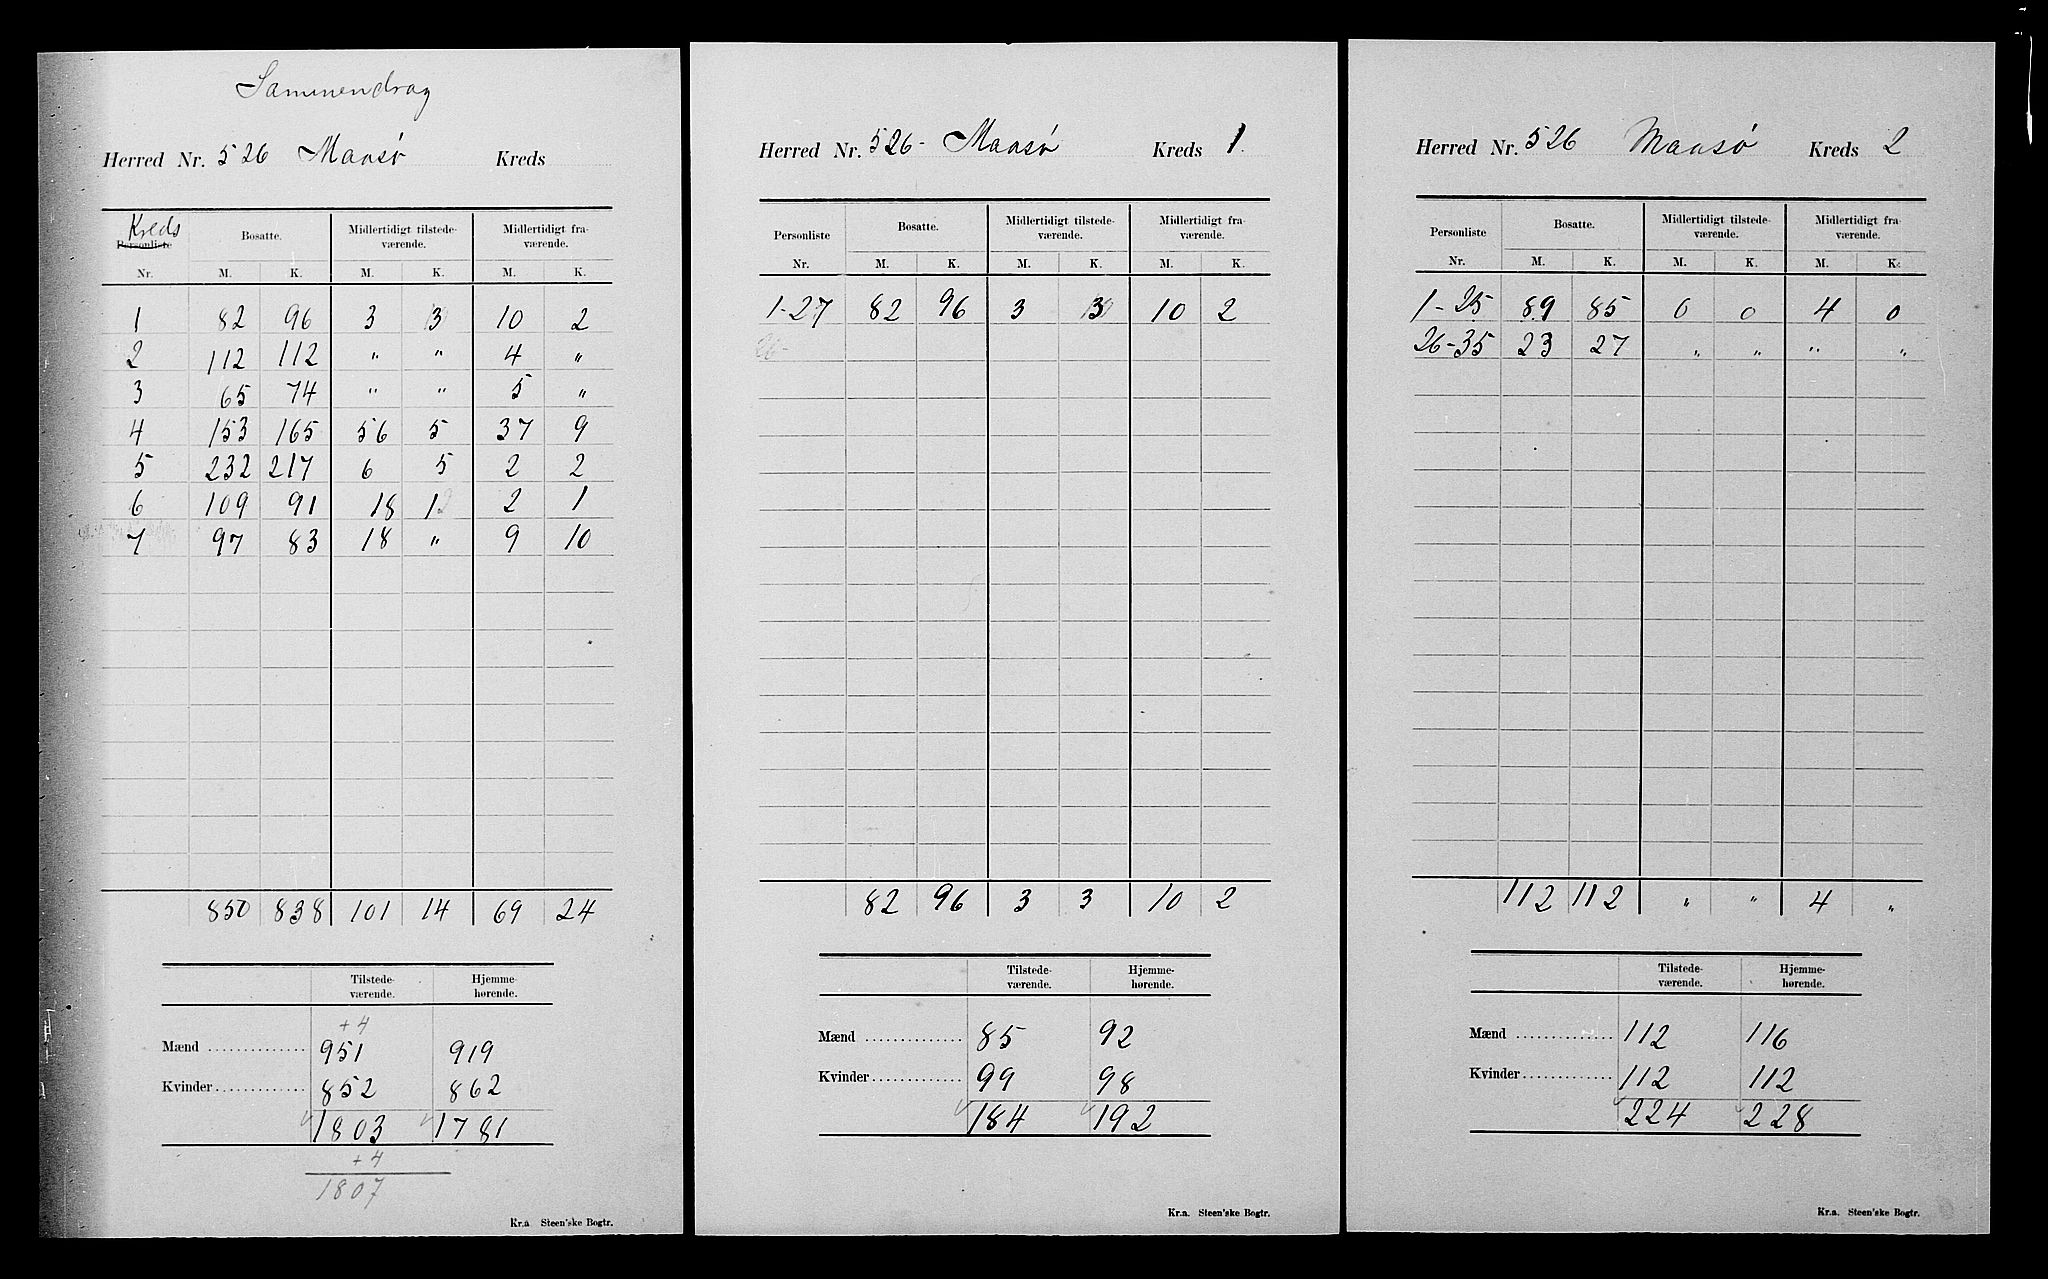 Sammendrag
Herred Nr. 526 Maasø Kreds
Kreds
Personliste Bosatte. Midlertidigt tilstede- Midlertidigt fra-
værende. værende.
Nr. M. K. M. K. M. K.
1 82 96 3 3 10 2
2 112 112 " " 4 "
3 65 74 " " 5 "
4 153 165 56 5 37 9
5 232 217 6 5 2 2
6 109 91 18 1 2 1
7 97 83 18 " 9 10
850 838 101 14 69 24
Tilstede- Hjemme-
værende. hørende.
+4
Mænd .............. 951 919
Kvinder ............. 852 862
1803 1781
+4
1807
Kr.a Steen'ske Bogtr.
Herred Nr. 526 - Maasø Kreds 1.
Personliste Bosatte. Midlertidigt tilstede- Midlertidigt fra-
værende. værende.
Nr. M. K. M. K. M. K.
1-27 82 96 3 3 10 2
26-
82 96 3 3 10 2
Tilstede- Hjemme-
værende. hørende.
Mænd .............. 85 92
Kvinder ............. 99 98
184 192
Kr.a. Steen'ske Bogtr.
Herred Nr. 526 Maasø Kreds 2
Personliste Bosatte. Midlertidigt tilstede- Midlertidigt fra-
værende. værende.
Nr. M. K. M. K. M. K.
1-25 89 85 0 0 4 0
26-35 23 27 " " " "
112 112 " " 4 "
Tilstede- Hjemme-
værende. hørende.
Mænd .............. 112 116
Kvinder ............. 112 112
224 228
Kr.a. Steen'ske Bogtr.